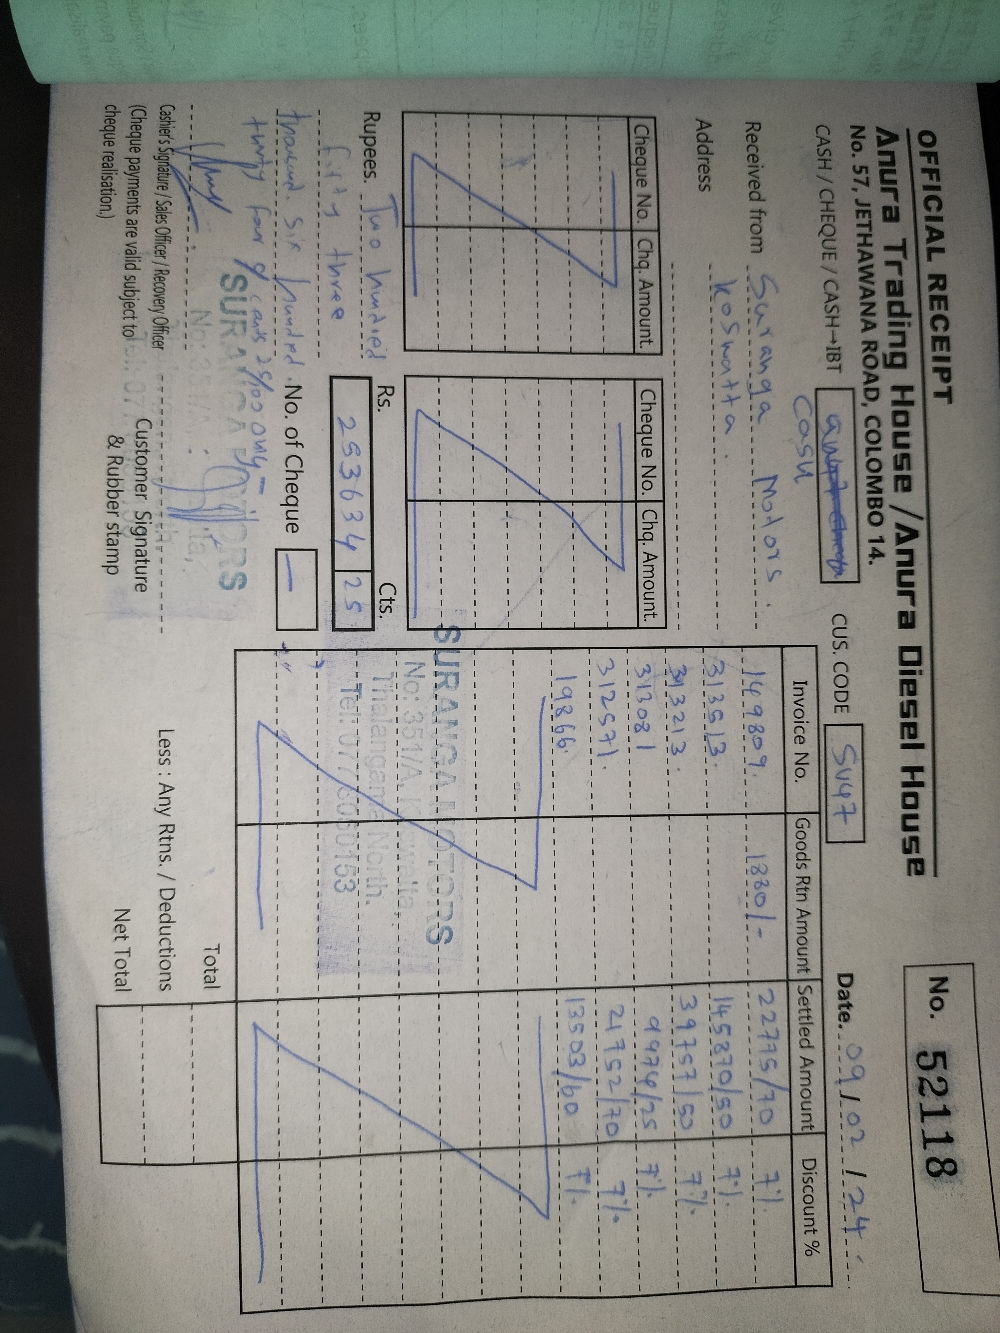 OFFICIAL RECEIPT
No. 52118
Anura Trading House / Anura Diesel House
No. 57, JETHAWANA ROAD, COLOMBO 14.
CASH / CHEQUE / CASH→IBT
Cash
CUS. CODE SU47
Date. 09/02/24
Received from Suranga Motors.
Address Koswatta.
Cheque No. Chq. Amount. Cheque No. Chq. Amount.
Rupees. Two hundred
fifty three
thousand six hundred
thirty four & cents 25/00 only
Rs. Cts.
253634 25
No. of Cheque –
Invoice No. Goods Rtn Amount Settled Amount Discount %
149809. 1330/- 22775/70 7%
313513. 145870/50 7%
313213. 39757/50 7%
313081 9974/25 7%
312571. 21752/70 7%
19866. 13503/60 7%
SURANGA MOTORS
No: 351/A,
Thalangama North.
Total
Less : Any Rtns. / Deductions
Net Total
SURANGA MOTORS
Cashier's Signature / Sales Officer / Recovery Officer
(Cheque payments are valid subject to
cheque realisation.)
Customer Signature
& Rubber stamp